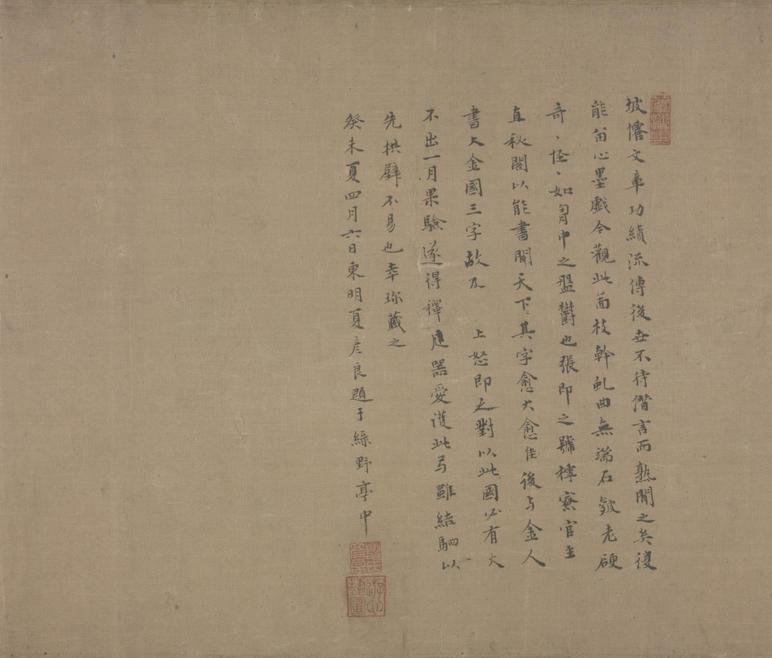 坡儋文章功績流傳後世不待僭言而熟聞之矣復
能留心墨戲今觀此啚枝幹虬曲無端石皴老硬
奇々怪々如胷中之盤鬱也張即之號樗寮官至
直秘閣以能書聞天下其字愈大愈佳後与金人
書大金國三字故瓦 上怒即之對以此國必有大
不出一月果驗遂得禪庭器愛護此与雖結駟以
先拱璧不易也幸珎藏之
癸未夏四月六日東明夏彥良題于綠野亭中